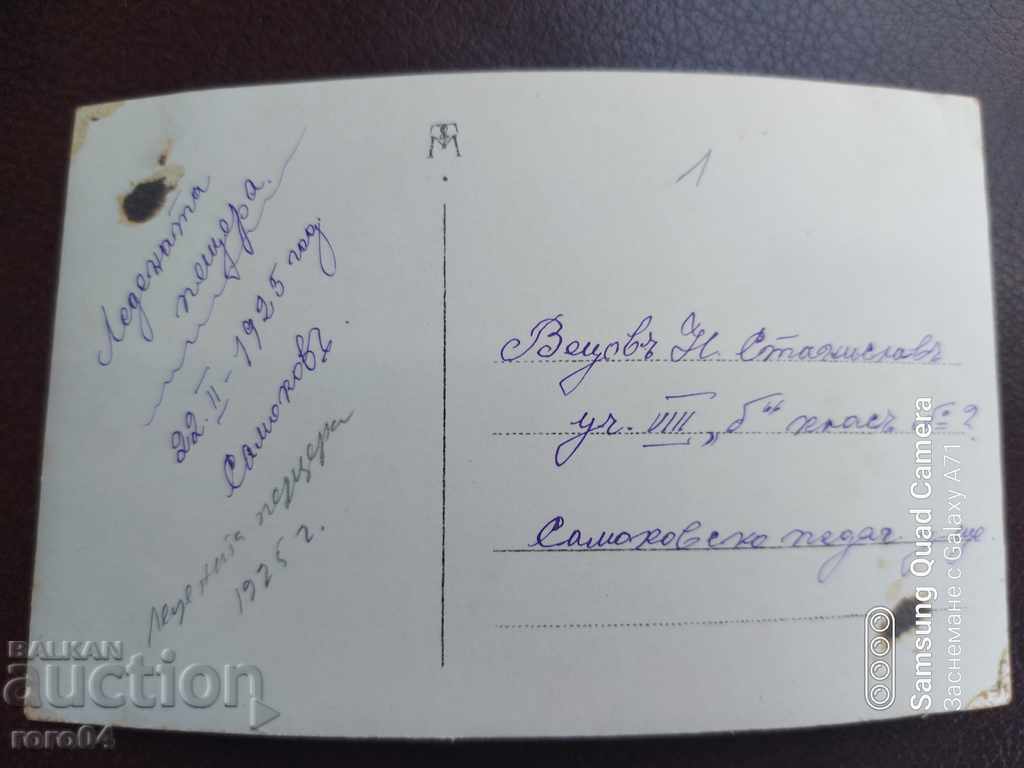 Ледената
пещера.
22.II-1925 год.
Самоковъ
Ледената пещера
1925 г.
1
Вецовъ Н. Станиславъ
уч. VIII „б“ класъ № 2
Самоковско педаг. у-ще.
BALKAN
auction
roro04
Samsung Quad Camera
Заснемане с Galaxy A71